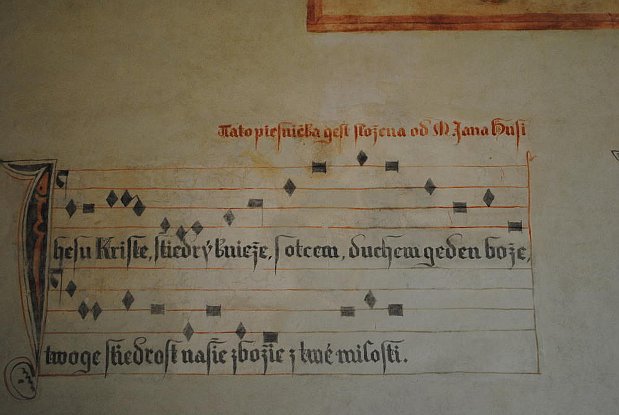 Tato piesnička gest slozena od M. Jana Husi
Jhesu Kriste, sstiedrý knieže, s otcem, duchem geden bože,
twoge sstiedrost nasie zbožie z twé milosti.